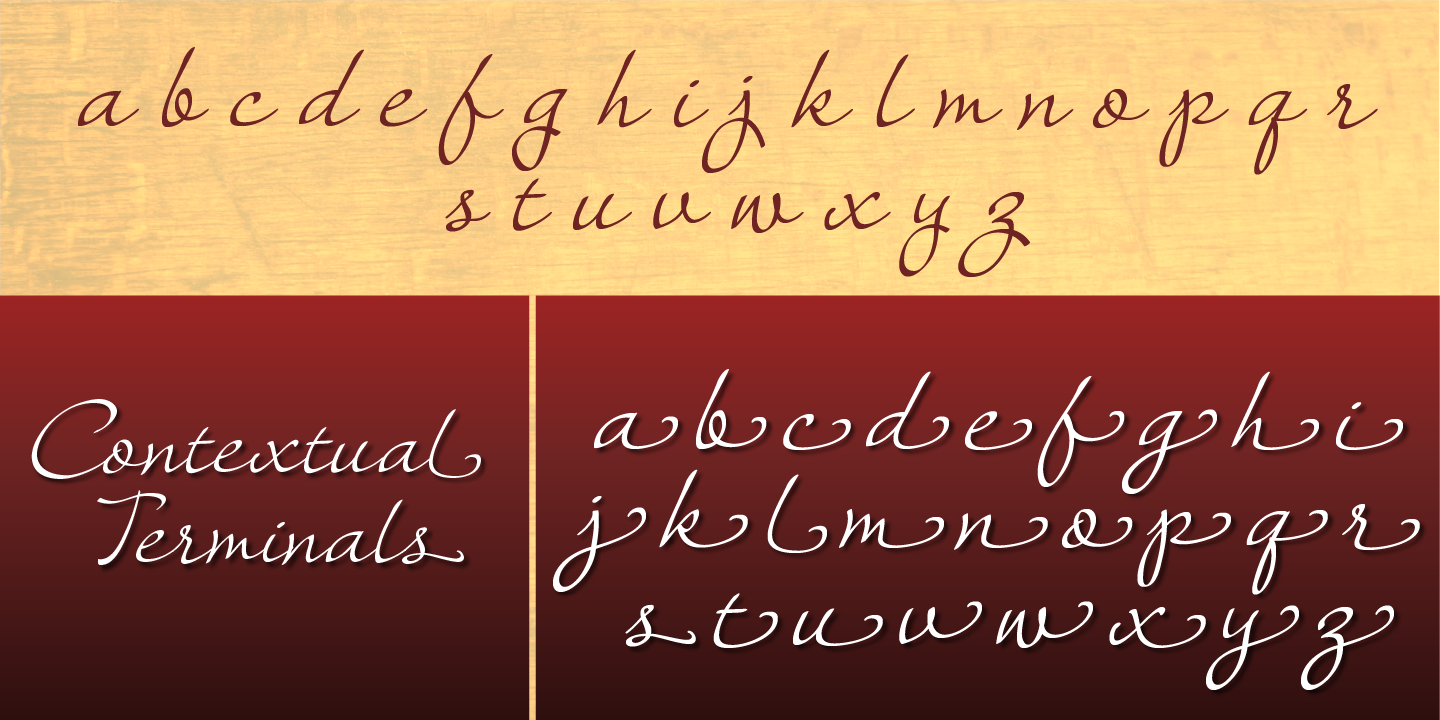 a b c d e f g h i j k l m n o p q r
s t u v w x y z
Contextual
Terminals
a b c d e f g h i
j k l m n o p q r
s t u v w x y z